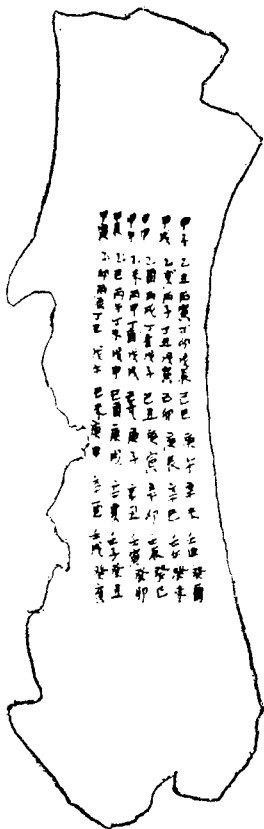 甲子 乙丑 丙寅 丁卯 戊辰 己巳 庚午 辛未 壬申 癸酉
甲戌 乙亥 丙子 丁丑 戊寅 己卯 庚辰 辛巳 壬午 癸未
甲申 乙酉 丙戌 丁亥 戊子 己丑 庚寅 辛卯 壬辰 癸巳
甲午 乙未 丙申 丁酉 戊戌 己亥 庚子 辛丑 壬寅 癸卯
甲辰 乙巳 丙午 丁未 戊申 己酉 庚戌 辛亥 壬子 癸丑
甲寅 乙卯 丙辰 丁巳 戊午 己未 庚申 辛酉 壬戌 癸亥